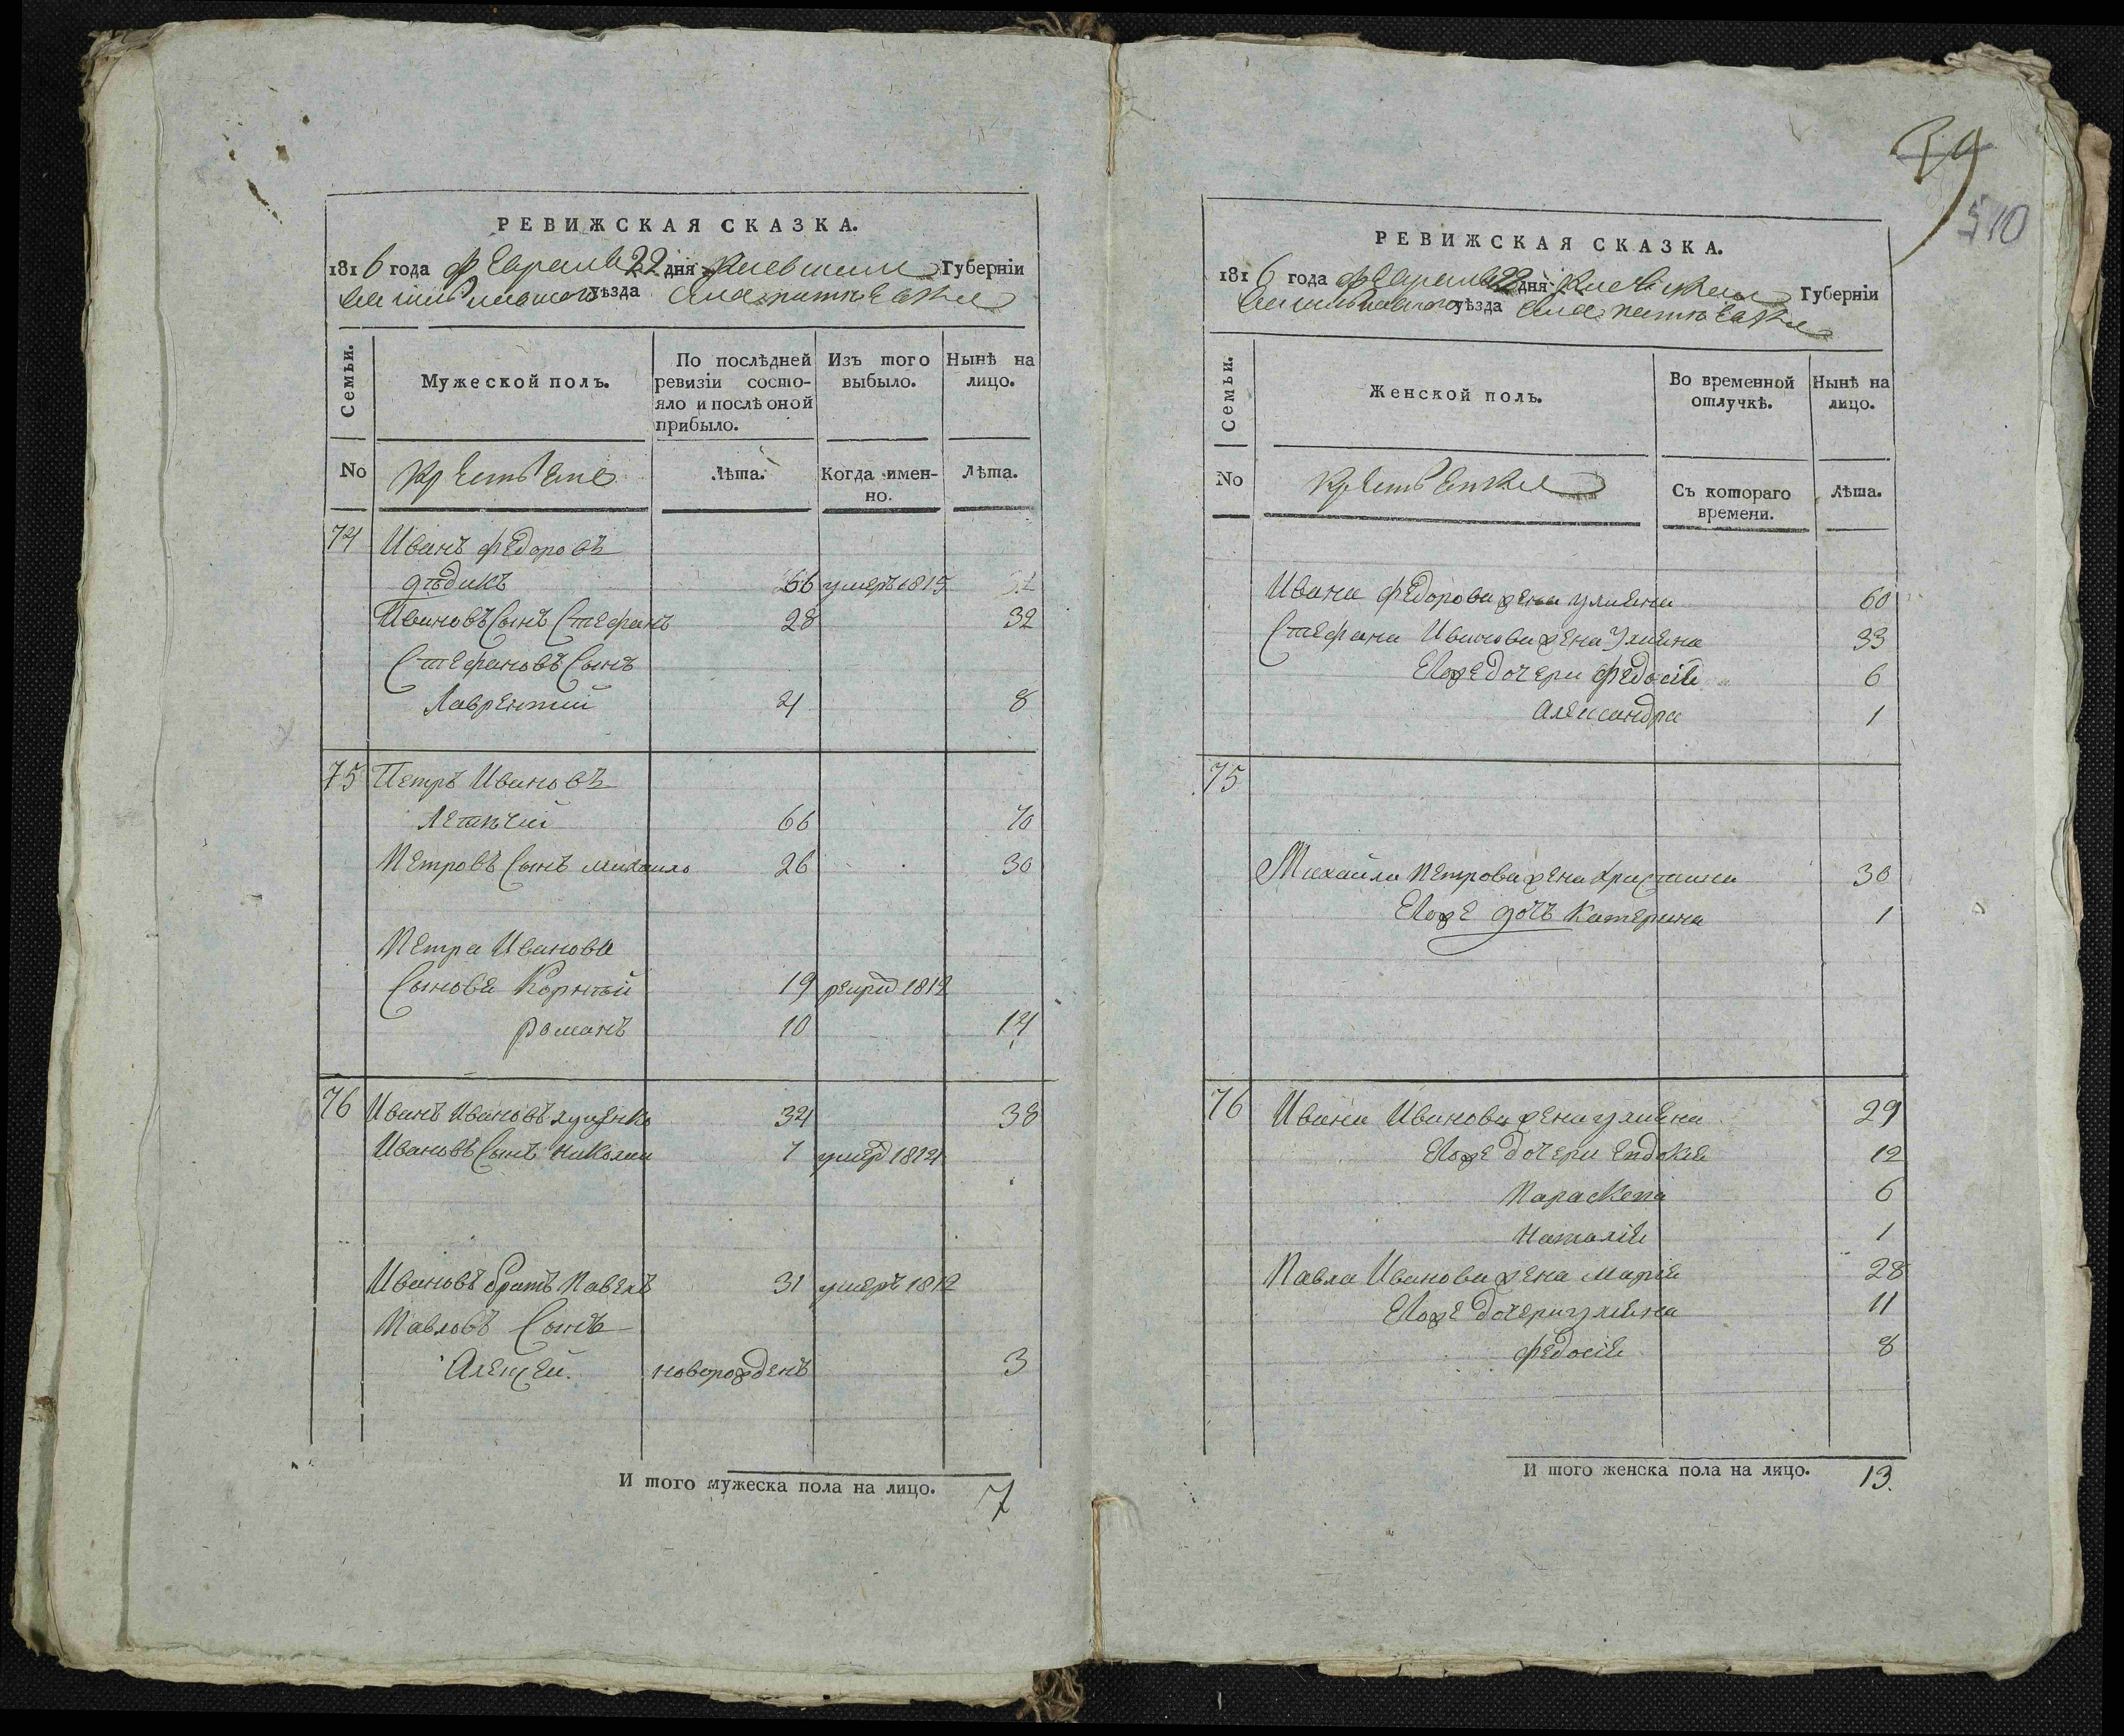 РЕВИЖСКАЯ СКАЗКА.
1816 года февраля 22 дня Киевской Губерніи
уѣзда села
Семьи.
Мужеской полъ.
По послѣдней ревизіи состо-
яло и послѣ оной
прибыло.
Изъ того
выбыло.
Нынѣ на
лицо.
No
Крестьяне
Лѣта.
Когда имен-
но.
Лѣта.
74 Иванъ Федоровъ
дѣдикъ 66 умеръ 1815
Ивановъ Сынъ Стефанъ 28 32
Стефановъ Сынъ
Лаврентій 4 8
75 Петръ Ивановъ
66 70
Петровъ Сынъ михайло 26 30
Петра Иванова
Сыновья Корнѣй 19 1812
романъ 10 14
76 Иванъ Ивановъ 34 38
Ивановъ Сынъ николай 7 умеръ 1814
Ивановъ братъ Павелъ 31 умеръ 1812
Павловъ Сынъ
Алексей. новорожденъ 3
И того мужеска пола на лицо. 7
59
510
РЕВИЖСКАЯ СКАЗКА.
1816 года февраля 22 дня Киевской Губерніи
уѣзда села
Семьи.
Женской полъ.
Во временной
отлучкѣ.
Нынѣ на
лицо.
No
Крестьянки
Съ котораго
времени.
Лѣта.
Ивана федорова жена улияна 60
Стефана Иванова жена Улияна 33
Егоже дочери федосія 6
александра 1
75
Михайла Петрова жена христина 30
Егоже дочь катерина 1
76 Ивана Иванова жена улияна 29
Егоже дочери Евдокія 12
Параскева 6
Наталія 1
Павла Иванова жена марія 28
Егоже дочери улияна 11
федосія 8
И того женска пола на лицо. 13.